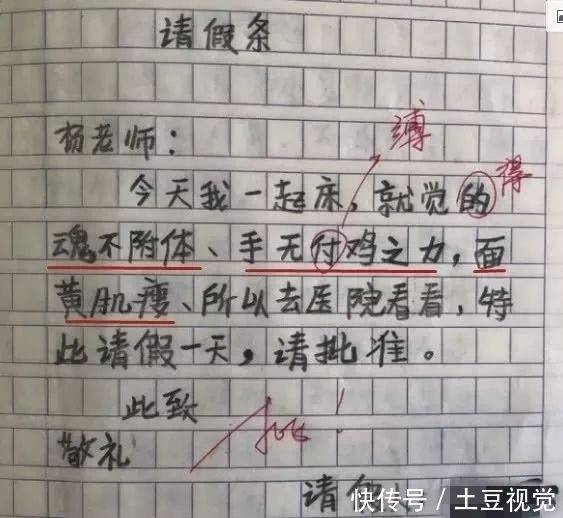 请假条
杨老师：
缚
今天我一起床，就觉的
得
魂不附体、手无付鸡之力，面
黄肌瘦、所以去医院看看，特
此请假一天，请批准。
此致
敬礼
批！
请假
快传号/土豆视觉